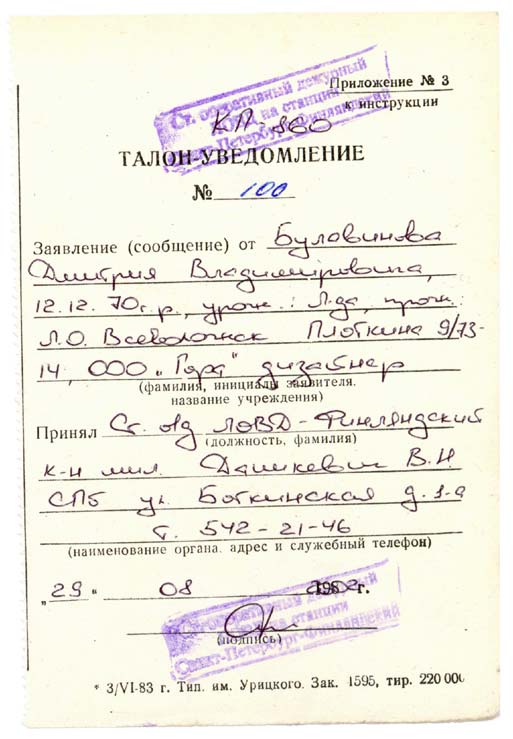 Приложение № 3
к инструкции
Ст. оперативный дежурный
на станции
Санкт-Петербург-Финляндский
КП-860
ТАЛОН-УВЕДОМЛЕНИЕ
№ 100
Заявление (сообщение) от Буловинова
Дмитрия Владимировича,
12.12.70 г.р., урож.: Л-да, прож.:
Л.О. Всеволожск Плоткина 9/73-
14, ООО „Гарт" дизайнер
(фамилия, инициалы заявителя.
название учреждения)
Принял Ст. о/д ЛОВД-Финляндский
(должность, фамилия)
к-н мил. Дашкевич В.Н.
СПб ул. Боткинская д. 1-а
т. 542-21-46
(наименование органа. адрес и служебный телефон)
„29" 08 г.
Ст. оперативный дежурный
на станции
Санкт-Петербург-Финляндский
(подпись)
* 3/VI-83 г. Тип. им. Урицкого. Зак. 1595, тир. 220 000